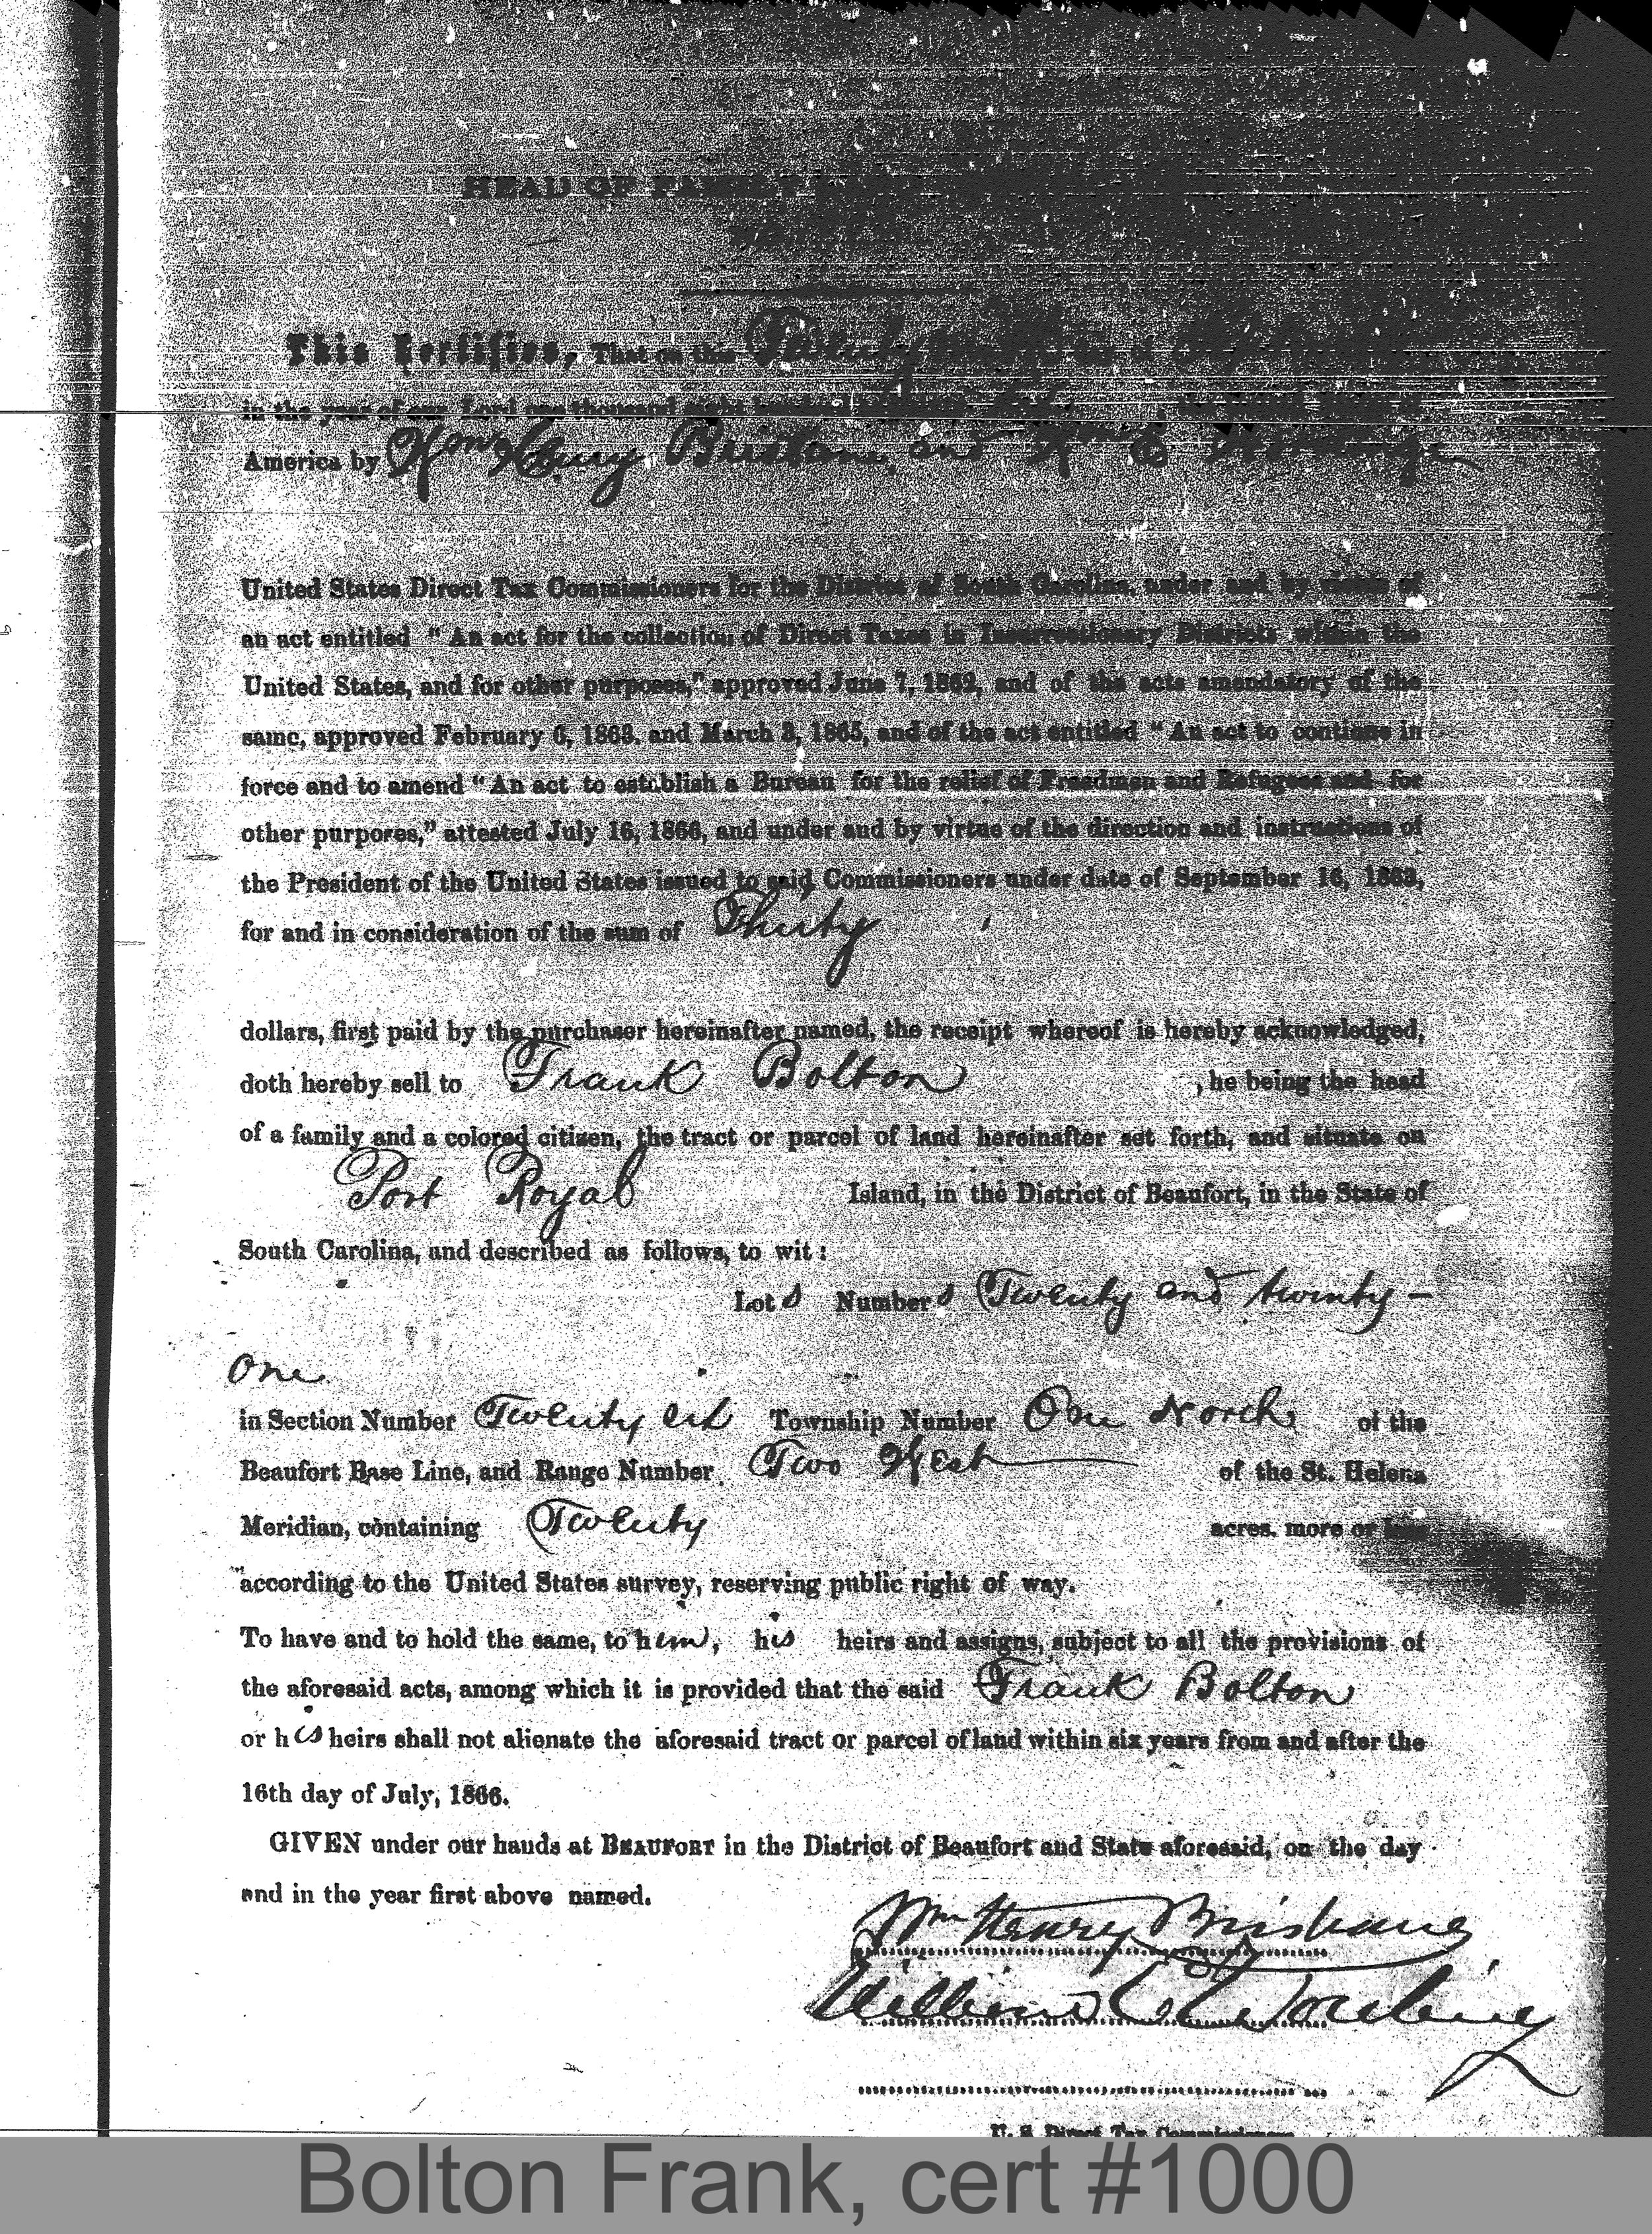 HEAD OF FAMILY
This Certifies, That on this
in the year of our Lord one thousand eight hundred
America by Wm Henry Brisbane, and Wm E Wording
United States Direct Tax Commissioners for the District of South Carolina, under and by virtue of
an act entitled "An act for the collection of Direct Taxes in Insurrectionary Districts within the
United States, and for other purposes," approved June 7, 1862, and of the acts amendatory of the
same, approved February 6, 1863, and March 3, 1865, and of the act entitled "An act to continue in
force and to amend "An act to establish a Bureau for the relief of Freedmen and Refugees and for
other purposes," attested July 16, 1866, and under and by virtue of the direction and instructions of
the President of the United States issued to said Commissioners under date of September 16, 1863,
for and in consideration of the sum of Thirty
dollars, first paid by the purchaser hereinafter named, the receipt whereof is hereby acknowledged,
doth hereby sell to Frank Bolton , he being the head
of a family and a colored citizen, the tract or parcel of land hereinafter set forth, and situate on
Port Royal Island, in the District of Beaufort, in the State of
South Carolina, and described as follows, to wit:
Lots Numbers Twenty and twenty-
one
in Section Number Twenty six Township Number One North of the
Beaufort Base Line, and Range Number Two West of the St. Helena
Meridian, containing Twenty acres, more or less
according to the United States survey, reserving public right of way.
To have and to hold the same, to him, his heirs and assigns, subject to all the provisions of
the aforesaid acts, among which it is provided that the said Frank Bolton
or his heirs shall not alienate the aforesaid tract or parcel of land within six years from and after the
16th day of July, 1866.
GIVEN under our hands at BEAUFORT in the District of Beaufort and State aforesaid, on the day
and in the year first above named.
Wm Henry Brisbane
William E Wording
U. S. Direct Tax Commissioners
Bolton Frank, cert #1000